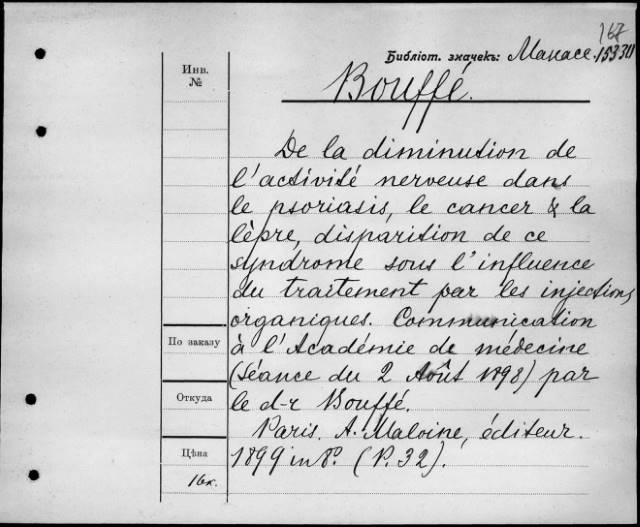 167
Библіот. значекъ: Манасе. 15330
Инв.
№
Bouffé.
De la diminution de
l'activité nerveuse dans
le psoriasis, le cancer & la
lèpre, disparition de ce
syndrome sous l'influence
du traitement par les injections
organiques. Communication
По заказу
à l'Académie de médecine
(Séance du 2 Août 1898) par
Откуда
le d-r Bouffé.
Paris. A. Maloine, éditeur.
Цѣна
1899 in 8º. (P. 32).
16к.